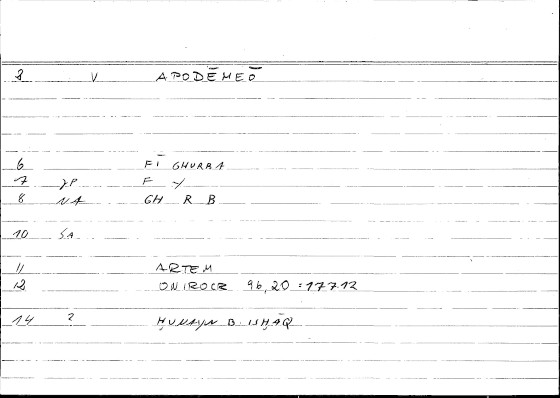 3 V APODĒMEŌ
6 FĪ GHURBA
7 JP F Y
8 NA GH R B
10 SA
11 ARTEM
12 ONIROCR 96,20 = 177 12
14 ? ḤUNAYN B. ISḤĀQ